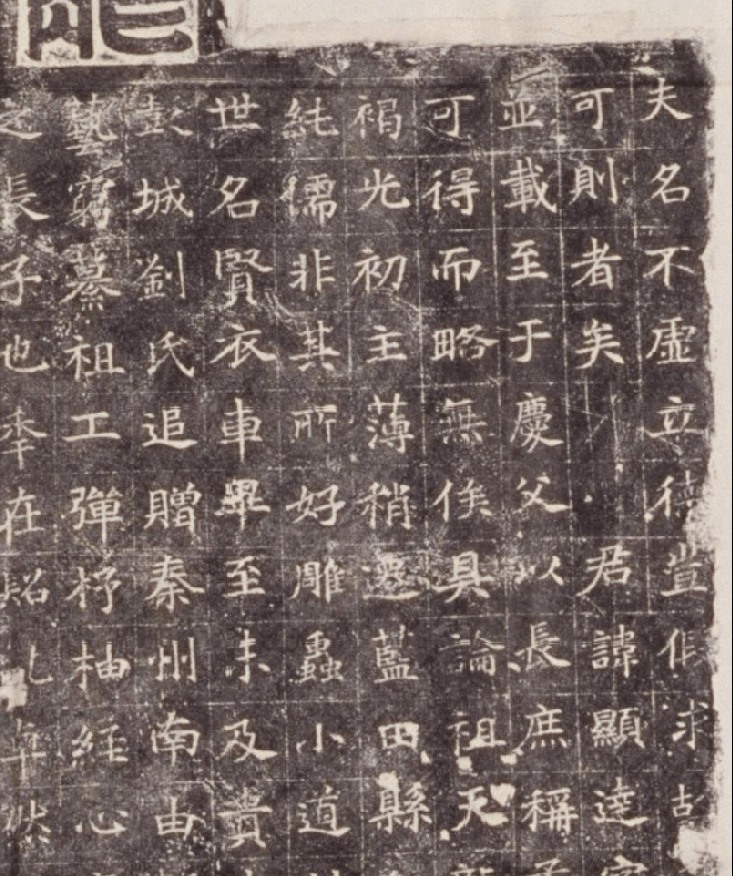 夫名不虛立德豈假求
可則者矣君諱顯達
並載至于慶父以長庶稱
可得而略無俟具論祖天
褐光初主薄稍遷藍田縣
純儒非其所好雕蟲小道
世名賢衣車畢至未及貴
彭城劉氏追贈秦州南由
藝窮綦祖工彈杼柚經心
之長子也季在